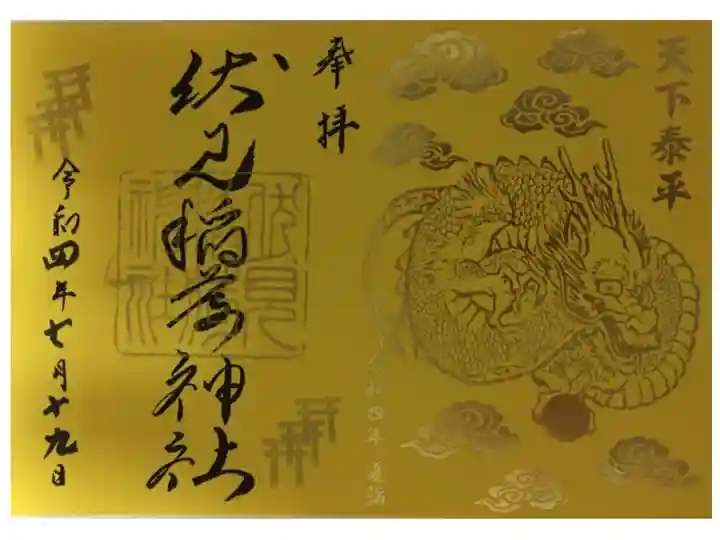 天下泰平
奉拝
伏見稲荷神社
令和四年七月十九日
令和四年 夏詣